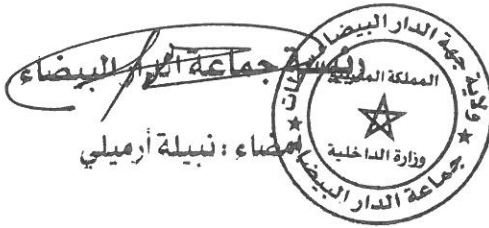 رئيسة جماعة الدار البيضاء
إمضاء : نبيلة أرميلي
ولاية جهة الدار البيضاء سطات
المملكة المغربية
وزارة الداخلية
جماعة الدار البيضاء